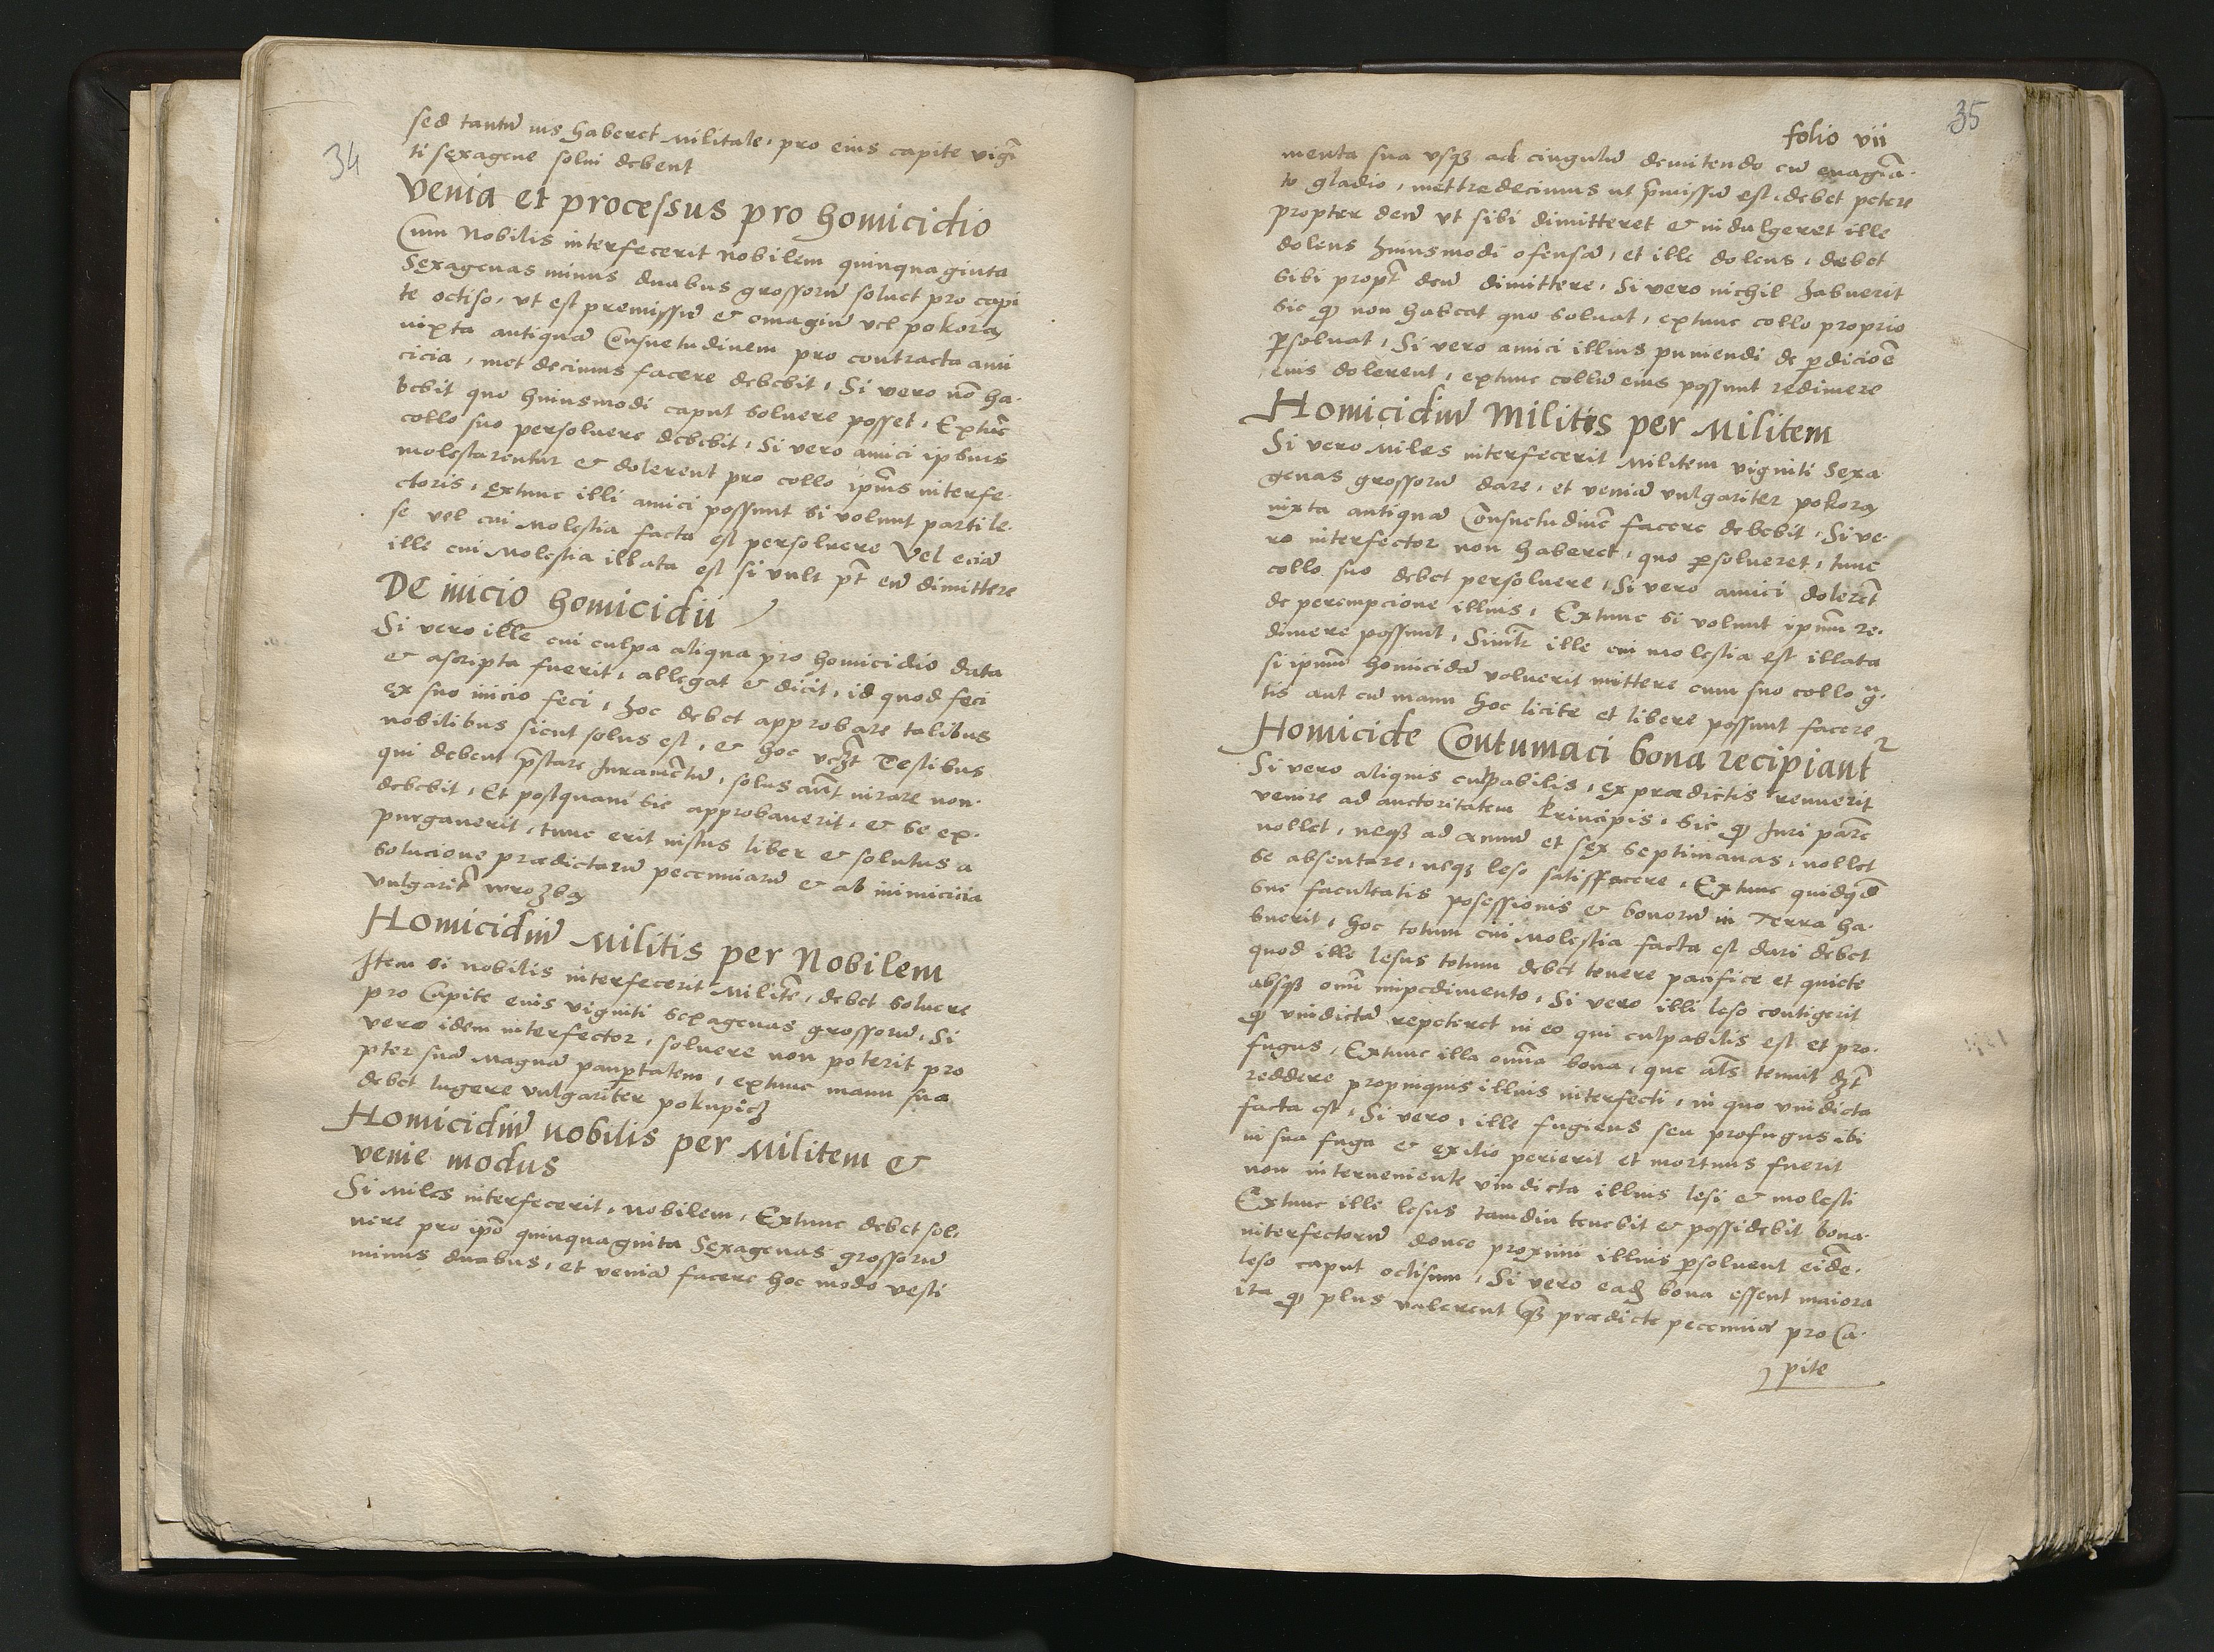 34
sed tantũ ius haberet Militale, pro eius capite vigĩ
ti sexagene solui debent
Venia et processus pro homicidio
Cum Nobilis interfecerit Nobilem quinquaginta
Sexagenas minus duabus grossorũ soluet pro capi
te occiso, vt est premissũ & omagiũ vel pokorą
iuxta antiquã Consuetudinem pro contracta ami
cicia, met decimus facere debebit, Si vero nõ ha-
bebit quo huiusmodi caput soluere posset, Extũc
collo suo persoluere debebit, Si vero amici ipsius
molestarentur & dolerent pro collo ipsius interfe-
ctoris, extunc illi amici possunt si volunt parti le-
se vel cui Molestia facta est persoluere Vel eciã
ille cui Molestia illata est si vult pt̃ eũ dimittere
De inicio homicidii
Si vero ille cui culpa aliqua pro homicidio data
& ascripta fuerit, allegat & dicit, id quod feci
ex suo inicio feci, hoc debet approbare talibus
nobilibus sicut solus est, & hoc Testibus
qui debent p̃stare Juramẽtũ, solus aũt iurare non
debebit, Et postquam sic approbauerit, & se ex-
purgauerit, tunc erit iustus liber & solutus a
solucione prædictarũ pecuniarũ & ab inimicicia
vulgarit̃ wrozbą
Homicidiũ Militis per Nobilem
Item si nobilis interfecerit Militẽ, debet soluere
pro Capite eius viginti sexagenas grossorũ, Si
vero idem interfector, soluere non poterit pro
pter suã Magnã paup̃tatem, extunc manu sua
debet lugere vulgariter pokupicz
Homicidiũ nobilis per Militem &
venie modus
Si Miles interfecerit, nobilem, Extunc debet sol-
uere pro ipõ quinquaginta Sexagenas grossorũ
minus duabus, et veniã facere hoc modo vesti
35
folio vii
menta sua vsqz ad cingulũ demitendo cũ euagiã-
to gladio, mettredecimus ut p̃missũ est, debet petere
propter deũ vt sibi dimitteret & indulgeret ille
dolens huiusmodi ofensã, et ille dolens, debet
sibi propt̃ deũ dimittere, Si vero nichil habuerit
sic ꝙ non habeat quo soluat, extunc collo proprio
ꝑsoluat, Si vero amici illius puniendi de ꝑdicioẽ
eius dolerent, extunc collũ eius possunt redimere
Homicidiũ Militis per Militem
Si vero Miles interfecerit Militem viginti Sexa
genas grossorũ dare, et veniã vulgariter pokorą
iuxta antiquã Consuetudinẽ facere debebit, Si ve-
ro interfector non haberet, quo ꝑsolueret, tunc
collo suo debet persoluere, Si vero amici dolerẽt
de perempcione illius, Extunc si volunt ipsum re-
dimere possunt, Simlr̃ ille cui molestia est illata
si ipsum homicidã voluerit mittere cum suo collo g͂-
tis aut cũ manu hoc licite et libere possunt facere
Homicide Contumaci bona recipiant
Si vero aliquis culpabilis, ex prædictis renuerit
venire ad auctoritatem Principis, sic ꝙ Juri parẽ
nollet, neqz ad annũ et sex septimanas, nollet
se absentare, neqz leso satisfacere, Extunc quidqd̃
sue facultatis posessionis & bonorũ in Terra ha-
buerit, hoc totum cui Molestia facta est dari debet
quod ille lesus totum debet tenere pacifice et quiete
absqz om̃i impedimento, Si vero illi leso contigerit
ꝙ vindictã repeteret in eo qui culpabilis est et pro-
fugus, Extunc illa om̃ia bona, que al̃s tenuit
reddere propinquis illius interfecti, in quo vindicta
facta est, Si vero, ille fugiens seu profugus ibi
in sua fuga & exilio perierit et mortuus fuerit
non interueniente vindicta illius lesi & molesti
Extunc ille lesus tamdiu tenebit & possidebit bona
interfectorũ donec proximi illius ꝑsoluent eidẽ
leso caput occisum, Si vero eadẽ bona essent maiora
ita ꝙ plus valerent qz prædicte pecunie pro Ca-
pite